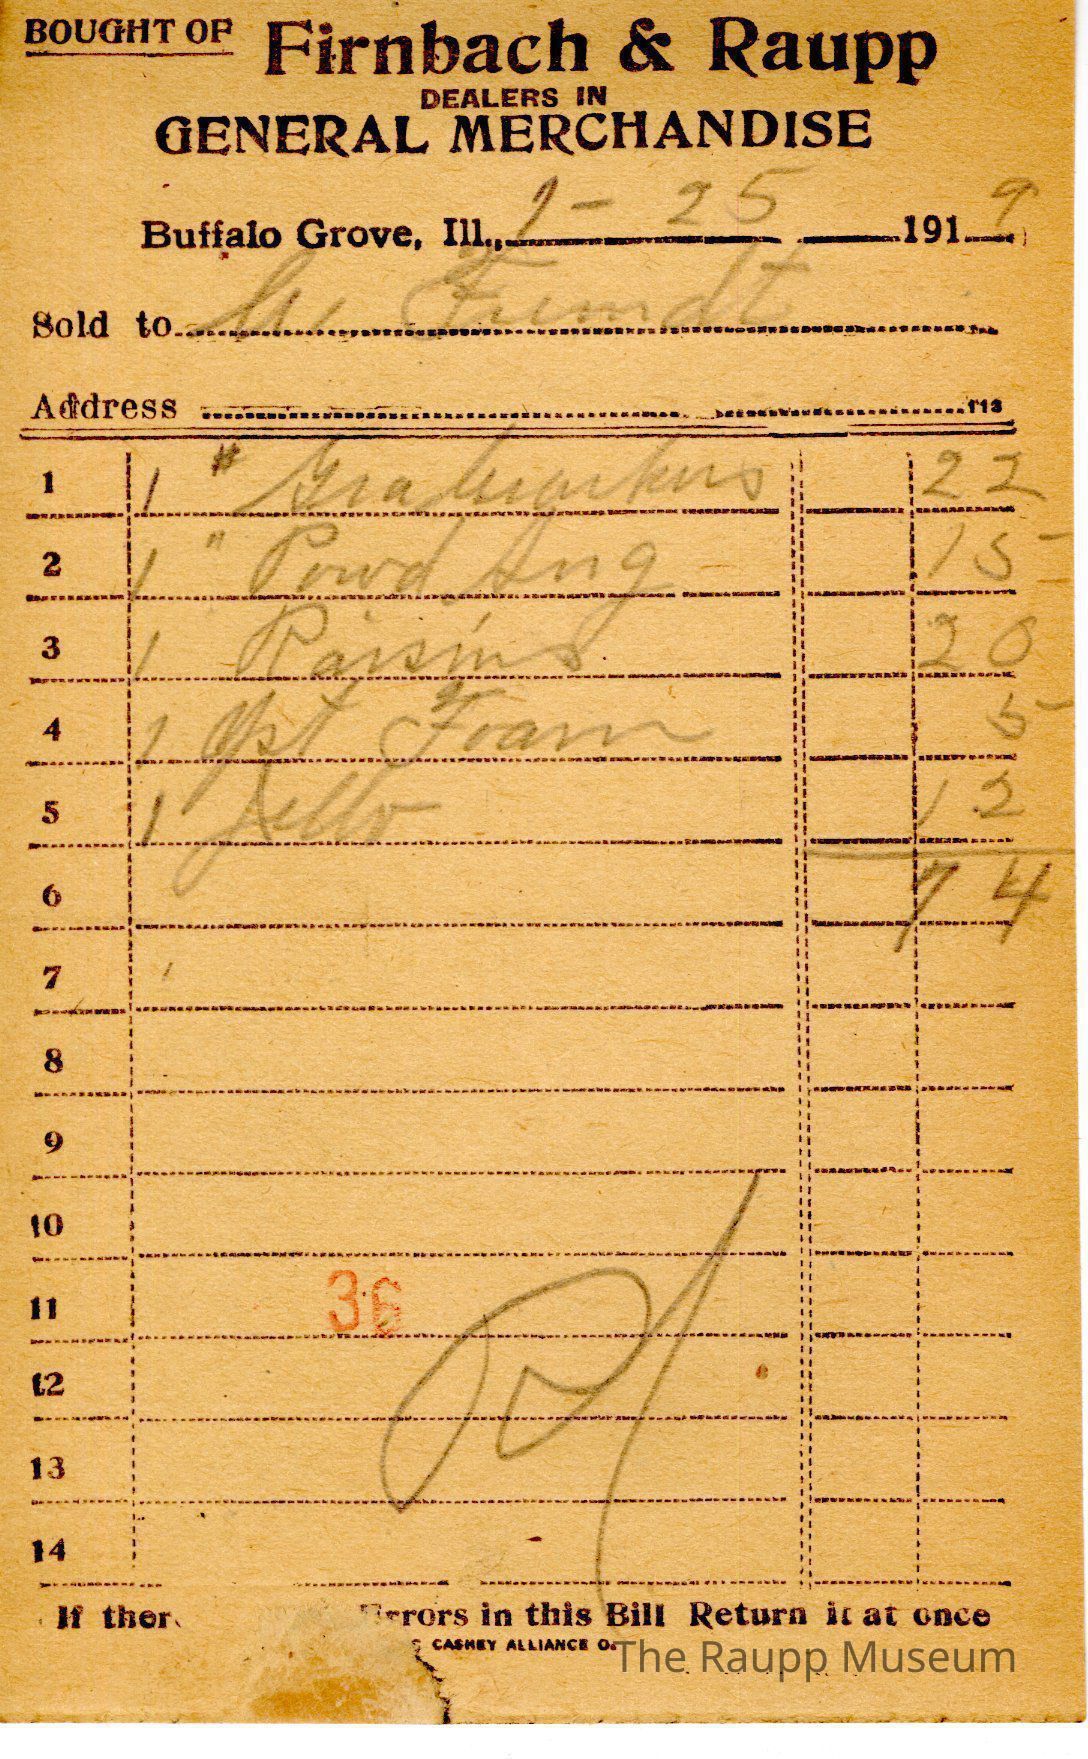 BOUGHT OF Firnbach & Raupp
DEALERS IN
GENERAL MERCHANDISE
Buffalo Grove, Ill., 1-25 1919
Sold to
Address 113
1 1 # 22
2 1 " Powd Sug 15
3 1 Raisins 20
4 1 Yst Foam 5
5 1 Jello 12
6 74
7
8
9
10
11 36
12
13
14
If ther Errors in this Bill Return it at once
CASHEY ALLIANCE O.
The Raupp Museum